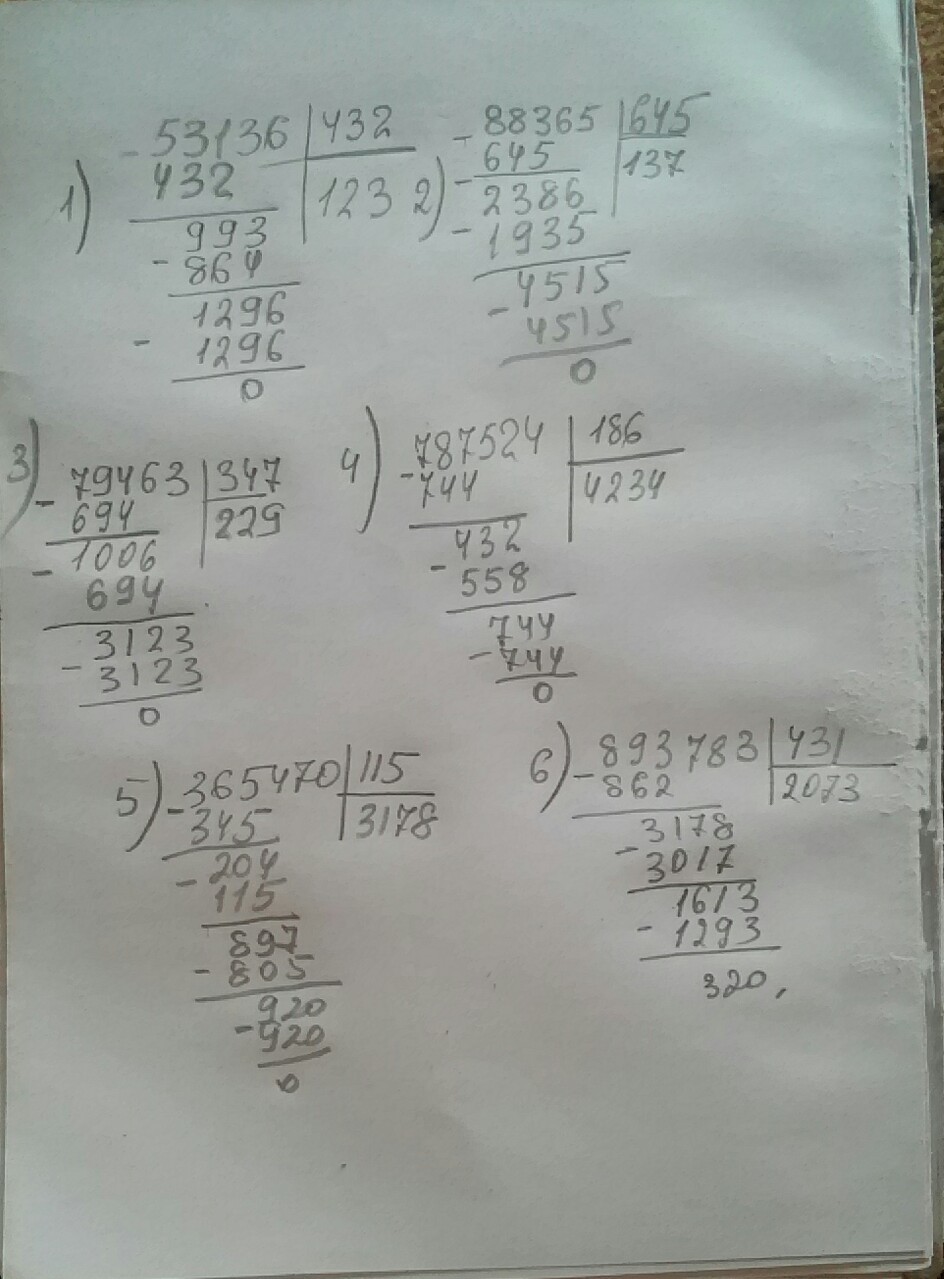 1) - 53136 | 432
432 | 123
993
- 864
1296
- 1296
0
2) - 88365 | 645
645 | 137
- 2386
- 1935
4515
- 4515
0
3) - 79463 | 347
694 | 229
- 1006
694
3123
- 3123
0
4) - 787524 | 186
744 | 4234
432
- 558
744
- 744
0
5) - 365470 | 115
345 | 3178
- 204
115
897
- 805
920
- 920
0
6) - 893783 | 431
862 | 2073
3178
- 3017
1613
- 1293
320,